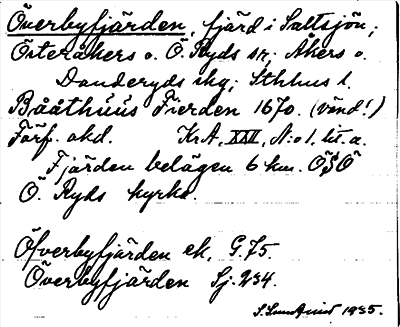 Överbyfjärden, fjärd i Saltsjön;
Österåkers o. Ö. Ryds sr; Åkers o.
Danderyds skg; Sthlms l.
Bååthúús Fierden 1670. (vänd!)
Förf. okd. Kr A, XXII, N:o 1, lit. a.
Fjärden belägen 6 km. ÖSÖ
Ö. Ryds kyrka.
Öfverbyfjärden ek, G. 75.
Överbyfjärden Sj. 234.
1935.